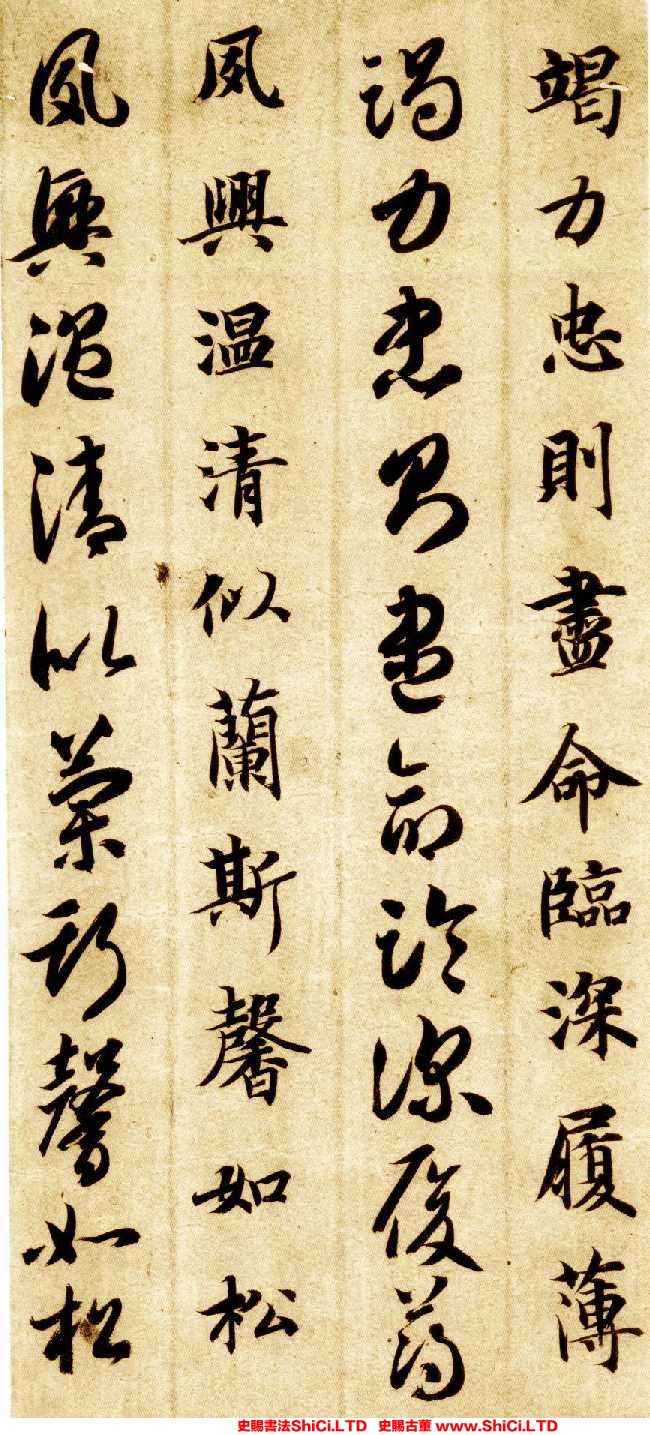 竭力忠則盡命臨深履薄
竭力忠則盡命臨深履薄
夙興温清似蘭斯馨如松
夙興温清似蘭斯馨如松
史賜書法ShiCi.LTD 史賜古董 www.ShiCi.LTD